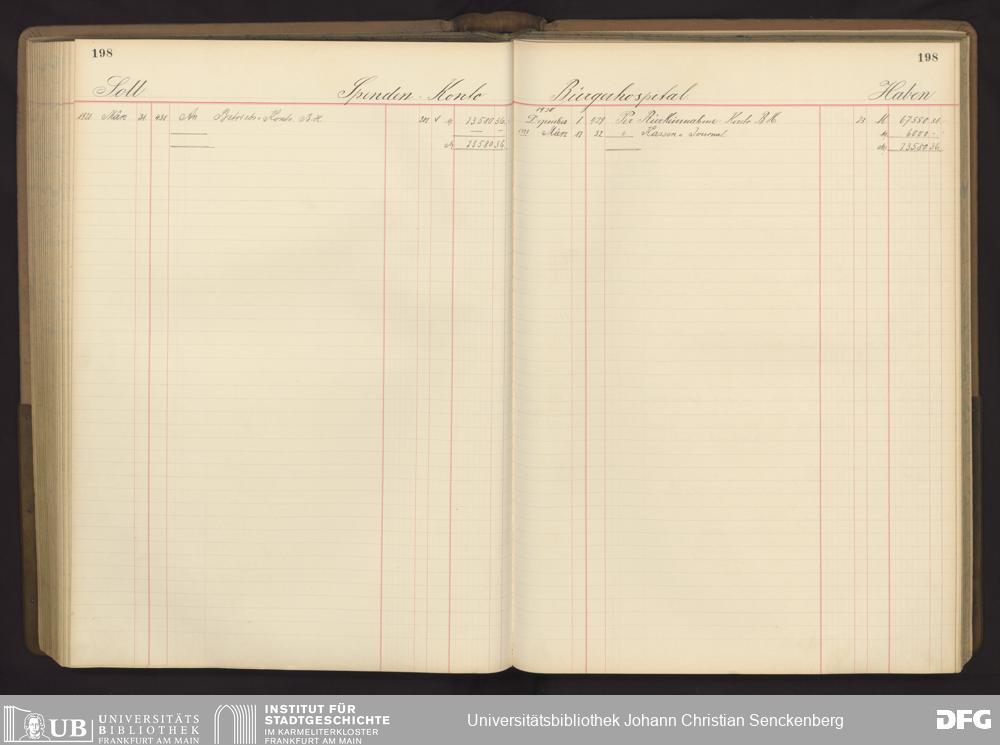 198
Soll Spenden-Konto
März 31. An Betriebs-Konto B.H. M 73580 36
M 73580 36
198
Bürgerhospital Haben
Dezember 1 Per Rückeinnahme Konto B.H. M 67580 36
März 32 " Kassen-Journal M 6000 -
M 73580 36
UB UNIVERSITÄTS
BIBLIOTHEK
FRANKFURT AM MAIN
INSTITUT FÜR
STADTGESCHICHTE
IM KARMELITERKLOSTER
FRANKFURT AM MAIN
Universitätsbibliothek Johann Christian Senckenberg
DFG